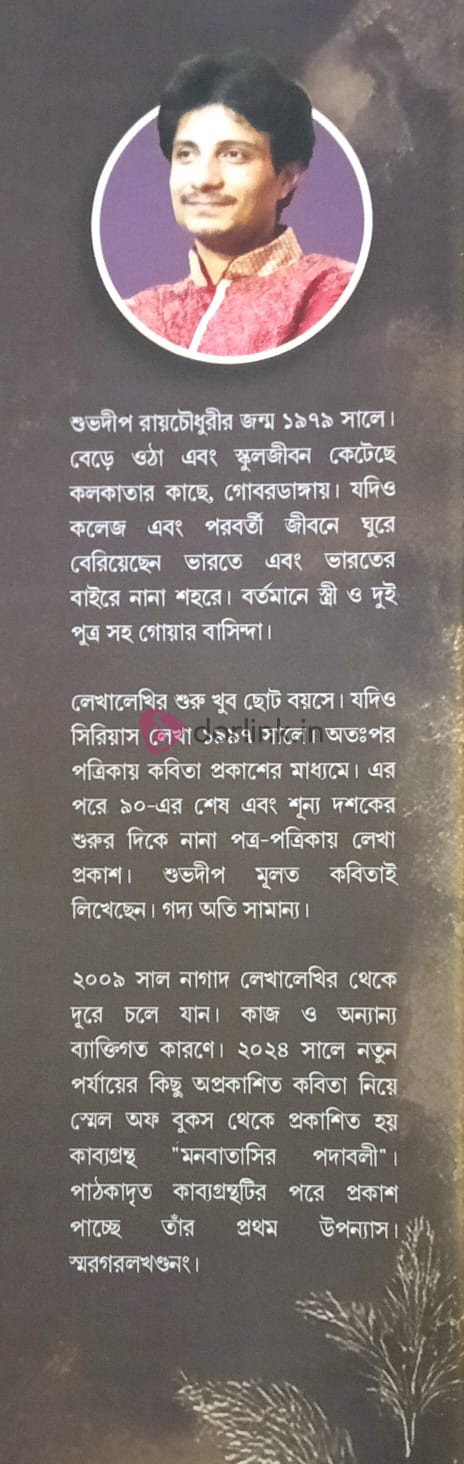 শুভদীপ রায়চৌধুরীর জন্ম ১৯৭৯ সালে।
বেড়ে ওঠা এবং স্কুলজীবন কেটেছে
কলকাতার কাছে, গোবরডাঙ্গায়। যদিও
কলেজ এবং পরবর্তী জীবনে ঘুরে
বেরিয়েছেন ভারতে এবং ভারতের
বাইরে নানা শহরে। বর্তমানে স্ত্রী ও দুই
পুত্র সহ গোয়ার বাসিন্দা।
লেখালেখির শুরু খুব ছোট বয়সে। যদিও
সিরিয়াস লেখা ১৯৯৭ সালে। অতঃপর
darlink.in
পত্রিকায় কবিতা প্রকাশের মাধ্যমে। এর
পরে ৯০-এর শেষ এবং শূন্য দশকের
শুরুর দিকে নানা পত্র-পত্রিকায় লেখা
প্রকাশ। শুভদীপ মূলত কবিতাই
লিখেছেন। গদ্য অতি সামান্য।
২০০৯ সাল নাগাদ লেখালেখির থেকে
দূরে চলে যান। কাজ ও অন্যান্য
ব্যাক্তিগত কারণে। ২০২৪ সালে নতুন
পর্যায়ের কিছু অপ্রকাশিত কবিতা নিয়ে
স্মেল অফ বুকস থেকে প্রকাশিত হয়
কাব্যগ্রন্থ "মনবাতাসির পদাবলী"।
পাঠকাদৃত কাব্যগ্রন্থটির পরে প্রকাশ
পাচ্ছে তাঁর প্রথম উপন্যাস।
স্মরগরলখণ্ডনং।